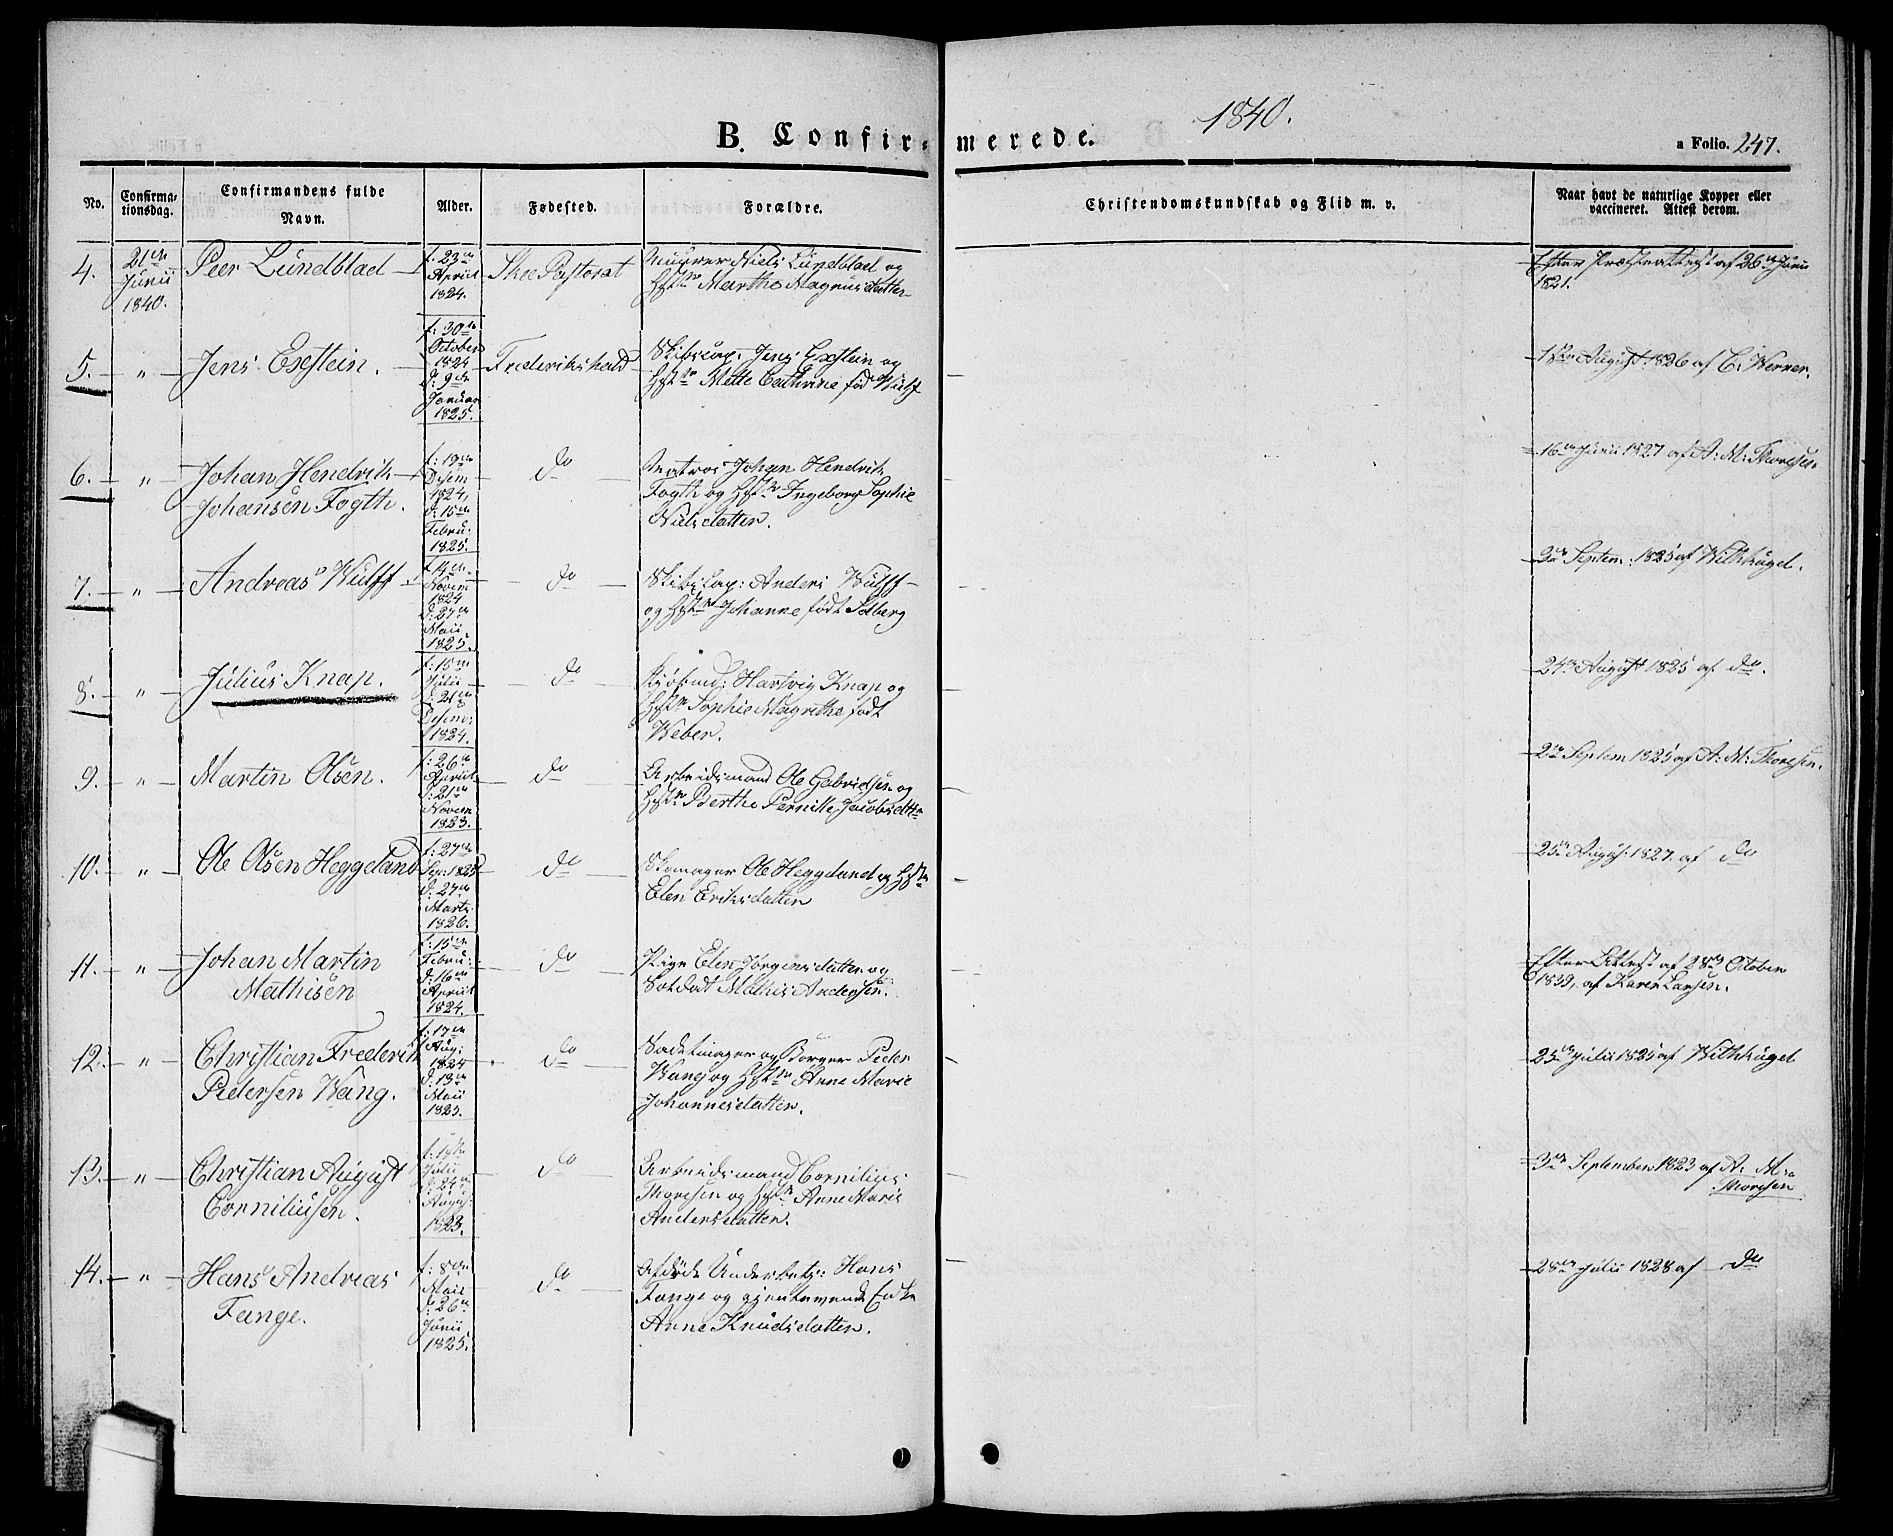 1840.
B. Confirmerede.
a Folio. 247.
No. Confirmationsdag. Confirmandens fulde Navn. Alder. Fødested. Forældre. Christendomskundskab og Flid m. v. Naar havt de naturlige Kopper eller vaccineret. Attest derom.
4. 21de Junii 1840. Peer Lundblad f: 23de April 1824. Skee Pastorat
Muurer Niels Lundblad og
Hstr Marthe Magnusdatter
Efter Præsteattest af 26de Junii
1821.
5. " Jens Exstein. f: 30te October 1824 d: 9de Januar 1825. Frederikshald
Skibscap: Jens Exstein og
Hstr Mette Cathrine fød Wulff
1ste August 1826 af C. Werner.
6. " Johan Hendrik
Johansen Fogth. f: 19de Desem 1824, d: 15de Febru: 1825. do
Matros Johan Hendrik
Fogth og Hstr Ingeborg Sophie
Nielsdatter.
16de Junii 1827 af A: M: Thoresen
7. " Andreas Wulff f: 14de Novem 1824 d: 27de Maii 1825. do
Skibscap: Anders Wulff
og Hstr Johanne født Solberg
3de Septem: 1825 af Withhügel.
8. " Julius Knap. f: 15de Julii d: 21de Desem: 1824. do
Kjøbmd: Hartvig Knap og
Hstr Sophie Magrethe født
Weber.
24de August 1825 af do.
9. " Martin Olsen. f: 26de April d: 21de Novem 1823. do
Arbeidsmand Ole Gabrielsen og
Hstr Berthe Pernille Jacobsdttr
2den Septem 1825 af A: M: Thoresen.
10. " Ole Olsen Heggeland f: 27de Sep: 1825 d: 27de Marts 1826. do
Skomager Ole Heggeland og Hstr
Elen Eriksdatter
25de August 1827. af do
11. " Johan Martin
Mathisen f: 15de Febru: d: 16de April 1824. do
Pige Elen Jørgensdatter og
Soldat Mathis Andersen.
Efter Attest af 28de October
1839, af Karen Larsen.
12. " Christian Frederik
Pedersen Wang. f: 17de Aug: 1824 d: 13de Maii 1825. do
Sadelmager og Borger Peder
Wang og Hstr Anne Marie
Johannesdatter.
25de Julii 1825 af Withhügel
13. " Christian August
Corniliusen. f: 19de Julii d: 24de Augus 1823. do
Arbeidsmand Cornilius
Thoresen og Hstr Anne Marie
Andersdatter.
3de September 1823 af A. M:
Thoresen
14. " Hans Andreas
Tange. f: 8de Maii d: 26de Junii 1825. do
Afdøde Underbetj: Hans
Tange og gjenlevende Enke
Anne Knudsdatter.
28de Julii 1828 af do